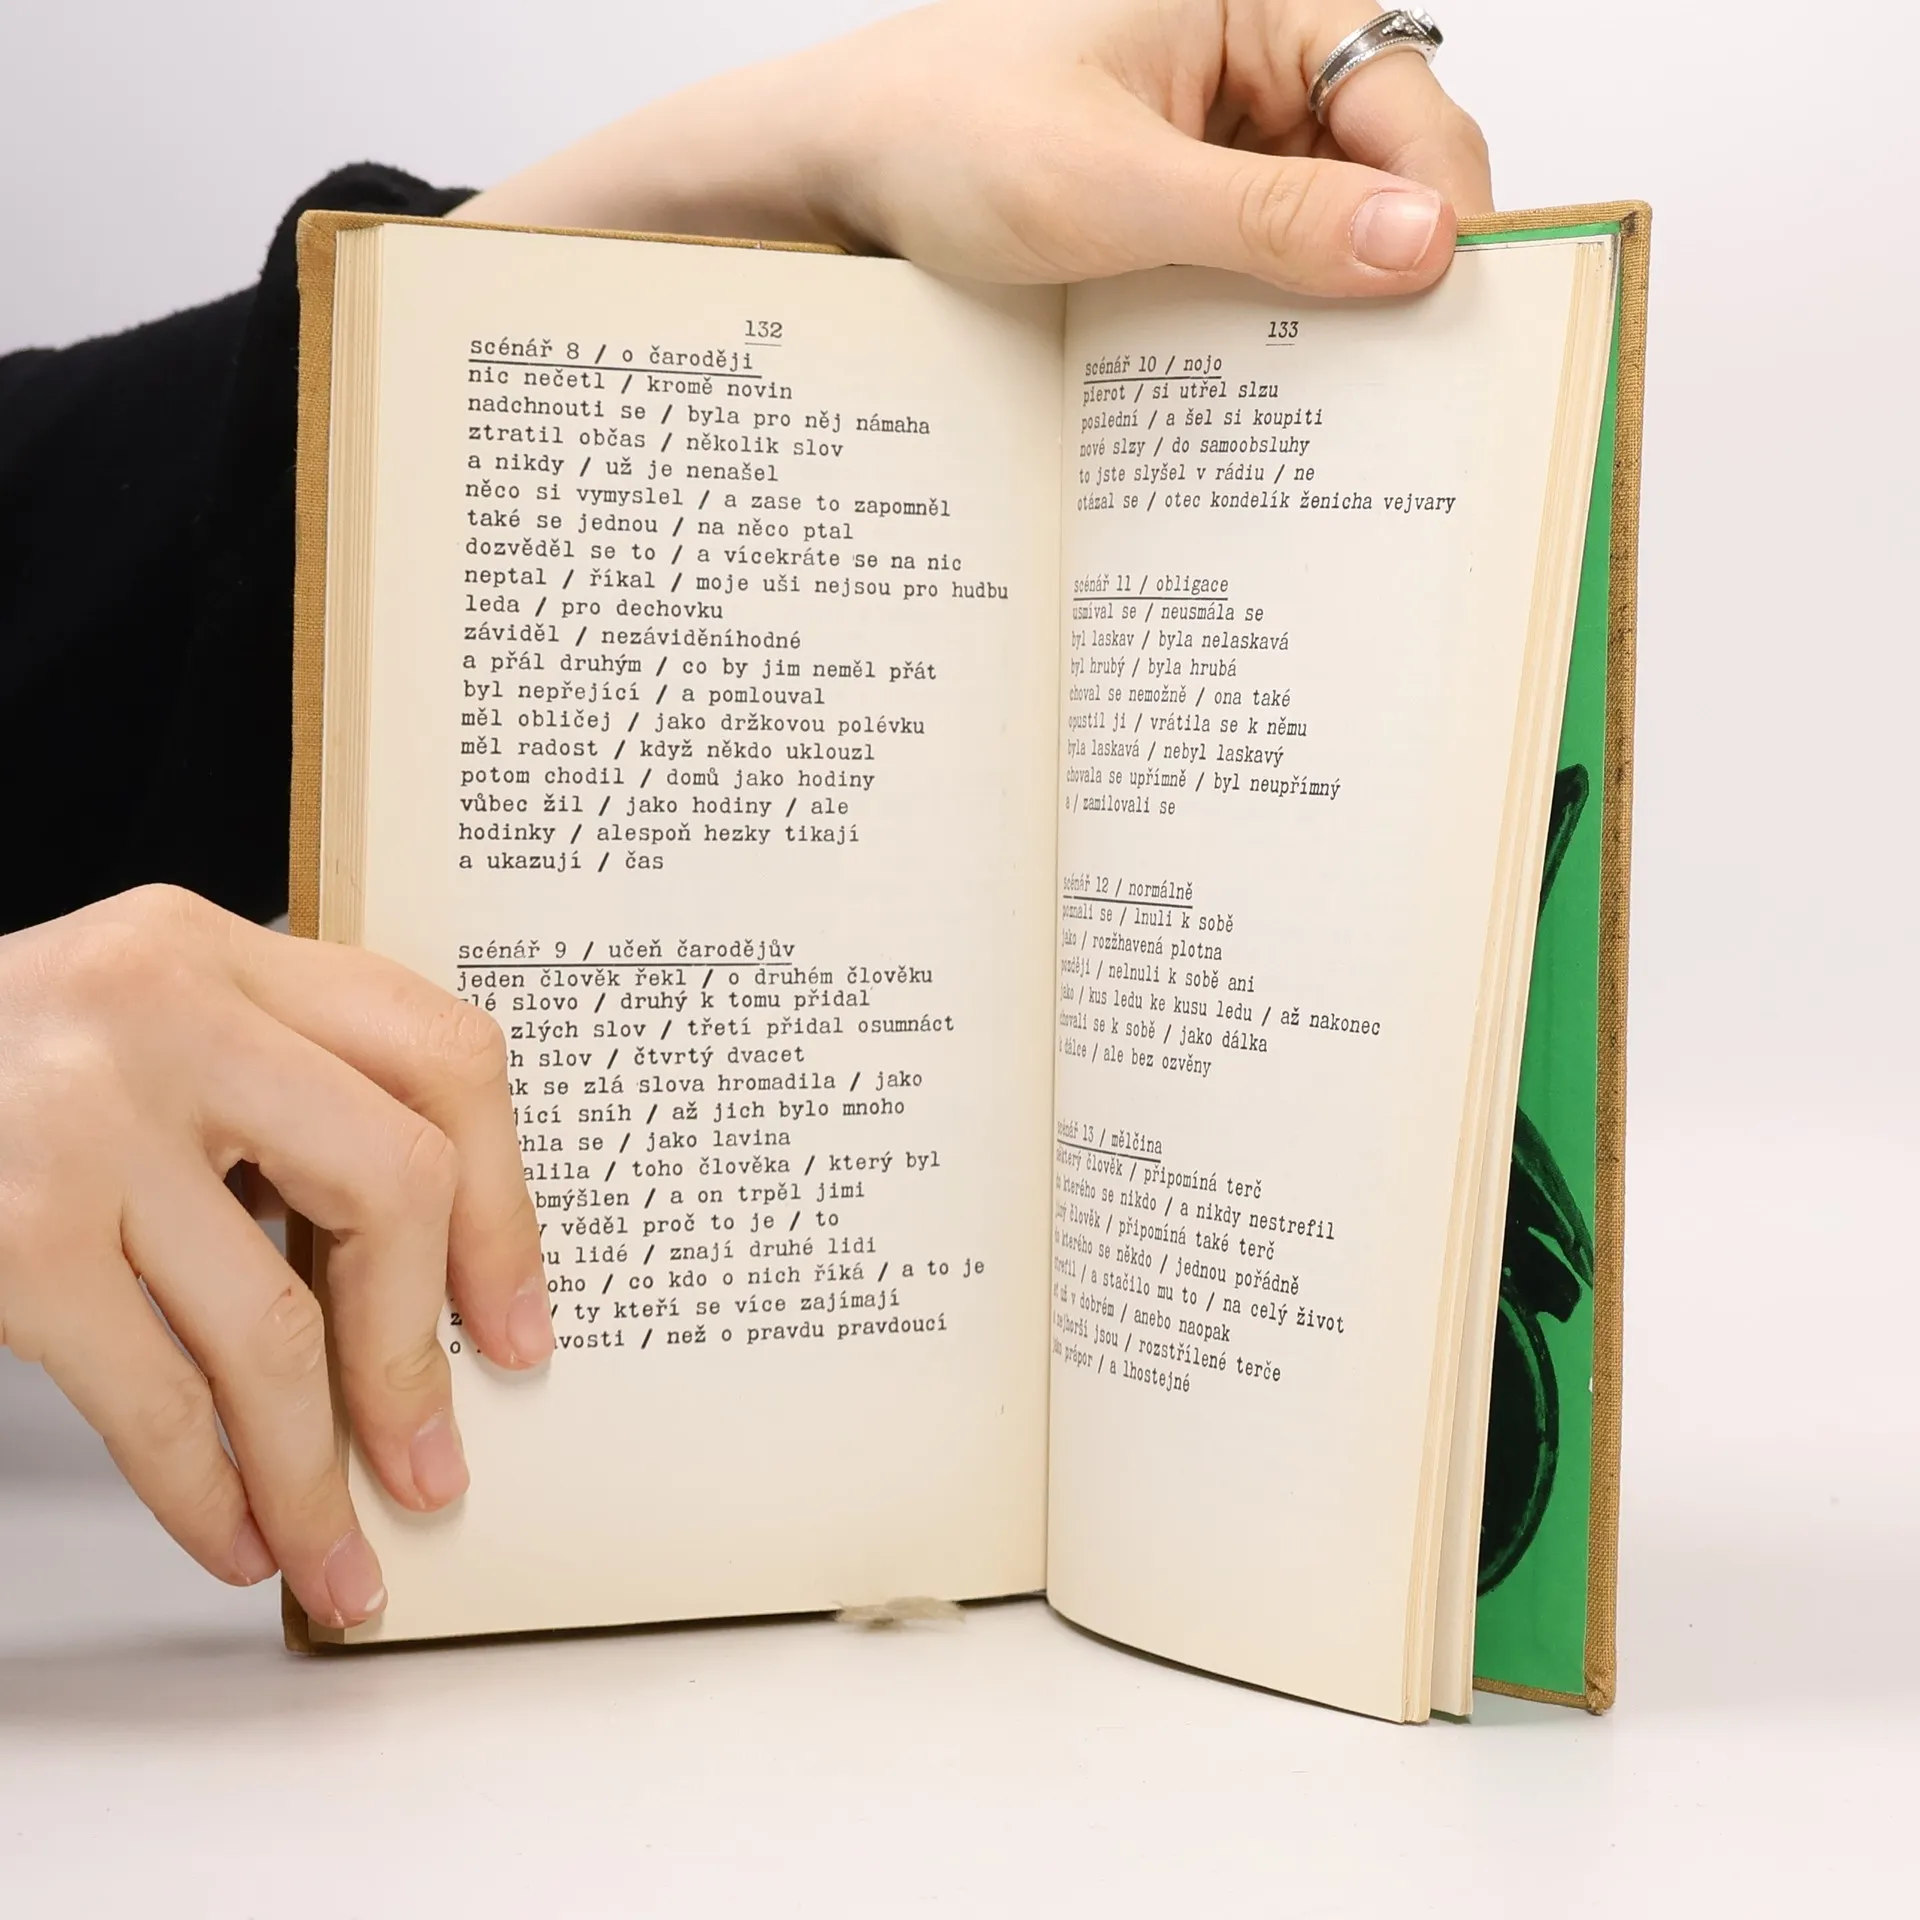 132
scénář 8 / o čaroději
nic nečetl / kromě novin
nadchnouti se / byla pro něj námaha
ztratil občas / několik slov
a nikdy / už je nenašel
něco si vymyslel / a zase to zapomněl
také se jednou / na něco ptal
dozvěděl se to / a vícekráte se na nic
neptal / říkal / moje uši nejsou pro hudbu
leda / pro dechovku
záviděl / nezáviděníhodné
a přál druhým / co by jim neměl přát
byl nepřející / a pomlouval
měl obličej / jako držkovou polévku
měl radost / když někdo uklouzl
potom chodil / domů jako hodiny
vůbec žil / jako hodiny / ale
hodinky / alespoň hezky tikají
a ukazují / čas
scénář 9 / učeň čarodějův
jeden člověk řekl / o druhém člověku
slovo / druhý k tomu přidal
zlých slov / třetí přidal osumnáct
slov / čtvrtý dvacet
se zlá slova hromadila / jako
sníh / až jich bylo mnoho
se / jako lavina
/ toho člověka / který byl
/ a on trpěl jimi
věděl proč to je / to
lidé / znají druhé lidi
/ co kdo o nich říká / a to je
/ ty kteří se více zajímají
o / než o pravdu pravdoucí
133
scénář 10 / nojo
pierot / si utřel slzu
poslední / a šel si koupiti
nové slzy / do samoobsluhy
to jste slyšel v rádiu / ne
otázal se / otec kondelík ženicha vejvary
scénář 11 / obligace
usmíval se / neusmála se
byl laskav / byla nelaskavá
byl hrubý / byla hrubá
choval se nemožně / ona také
opustil ji / vrátila se k němu
byla laskavá / nebyl laskavý
chovala se upřímně / byl neupřímný
a / zamilovali se
scénář 12 / normálně
poznali se / lnuli k sobě
jako / rozžhavená plotna
později / nelnuli k sobě ani
jako / kus ledu ke kusu ledu / až nakonec
chovali se k sobě / jako dálka
k dálce / ale bez ozvěny
scénář 13 / mělčina
některý člověk / připomíná terč
do kterého se nikdo / a nikdy nestrefil
jiný člověk / připomíná také terč
do kterého se někdo / jednou pořádně
strefil / a stačilo mu to / na celý život
ať už v dobrém / anebo naopak
a nejhorší jsou / rozstřílené terče
jako prápor / a lhostejné